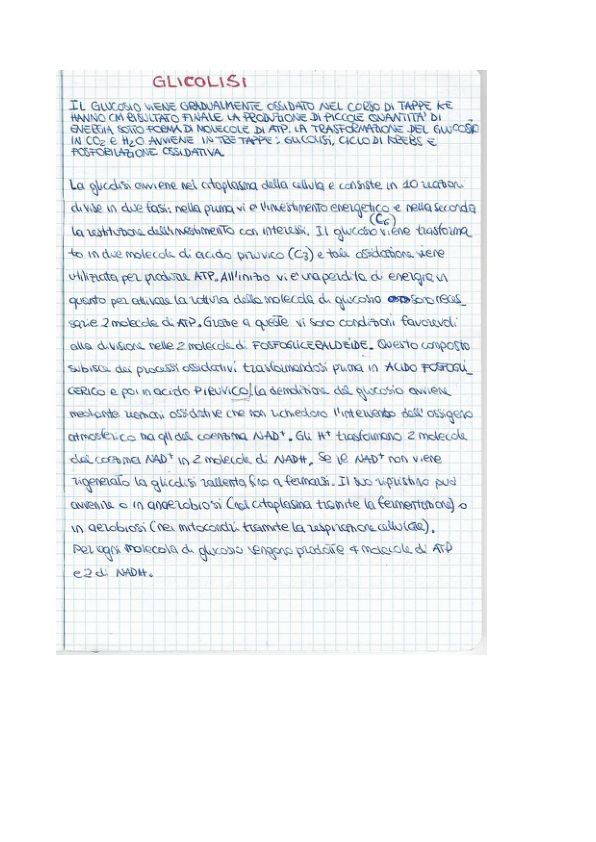 GLICOLISI
IL GLUCOSIO VIENE GRADUALMENTE OSSIDATO NEL CORSO DI TAPPE KE
HANNO CM RISULTATO FINALE LA PRODUZIONE DI PICCOLE QUANTITA' DI
ENERGIA SOTTO FORMA DI MOLECOLE DI ATP. LA TRASFORMAZIONE DEL GLUCOSIO
IN CO2 E H2O AVVIENE IN TRE TAPPE: GLICOLISI, CICLO DI KREBS E
FOSFORILAZIONE OSSIDATIVA.
La glicolisi avviene nel citoplasma della cellula e consiste in 10 reazioni
divise in due fasi: nella prima vi è l'investimento energetico e nella seconda
(C6)
la restituzione dell'investimento con interessi. Il glucosio viene trasforma
to in due molecole di acido piruvico (C3) e tale ossidazione viene
utilizzata per produrre ATP. All'inizio vi è una perdita di energia in
quanto per attivare la rottura della molecola di glucosio sono neces_
sarie 2 molecole di ATP. Grazie a queste vi sono condizioni favorevoli
alla divisione nelle 2 molecole di FOSFOGLICERALDEIDE. Questo composto
subisce dei processi ossidativi trasformandosi prima in ACIDO FOSFOGLI_
CERICO e poi in acido PIRUVICO/la demolizione del glucosio avviene
mediante reazioni ossidative che non richiedono l'intervento dell'ossigeno
atmosferico ma qll del coenzima NAD+. Gli H+ trasformano 2 molecole
del coenzima NAD+ in 2 molecole di NADH. Se il NAD+ non viene
rigenerato la glicolisi rallenta fino a fermarsi. Il suo ripristino può
avvenire o in anaerobiosi (nel citoplasma tramite la fermentazione) o
in aerobiosi (nei mitocondri tramite la respirazione cellulare).
Per ogni molecola di glucosio vengono prodotte 4 molecole di ATP
e 2 di NADH.